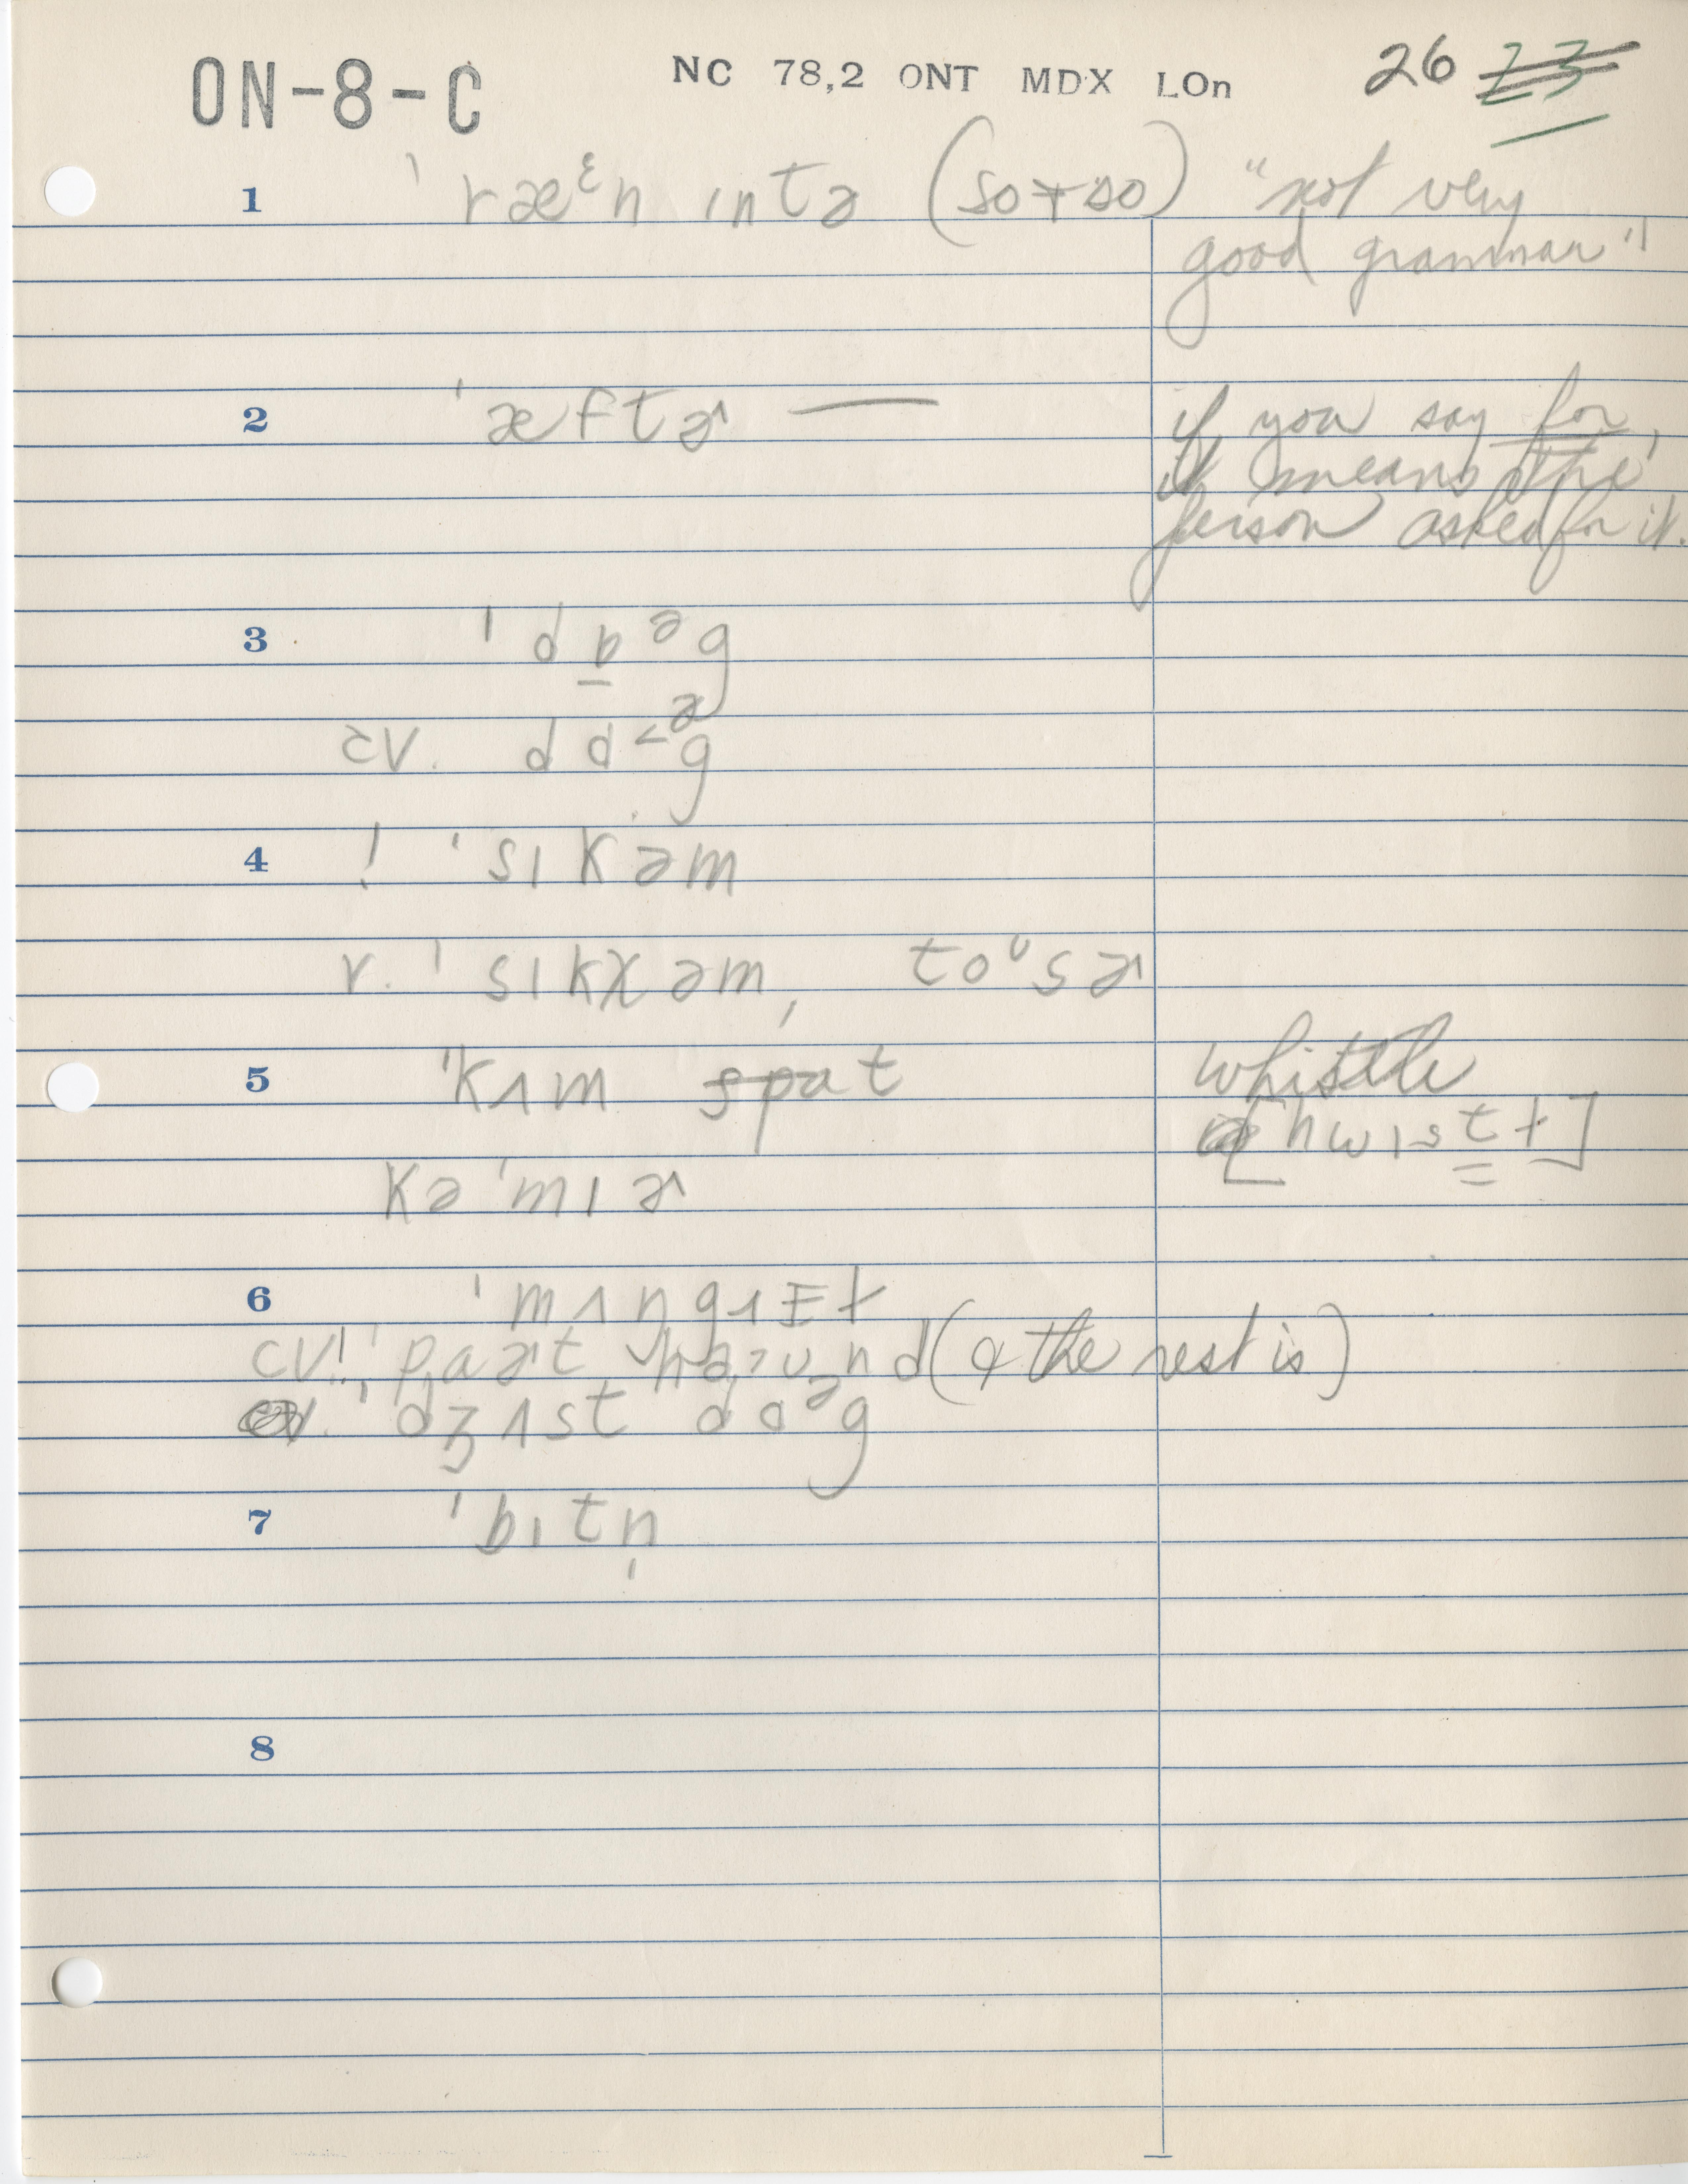 ON-8-C NC 78,2 ONT MDX LOn 26 23
1 ˈræᵋn ɪntə (so + so) "not very
good grammar"
2 ˈæftɚ — if you say for,
it means the
person asked for it.
3 ˈdɒᵊg
cv. dɒ^ᵊg
4 ! ˈsɪkəm
r. ˈsɪkχəm, toᵘsɚ
5 ˈkʌm spat whistle
[hwɪstɫ]
kəˈmɪɚ
6 ˈmʌngrɪɫ
cv! ˈpaɚt haᵘnd (& the rest is)
cv. ˈdʒʌst dɒᵊg
7 ˈbɪtn̩
8